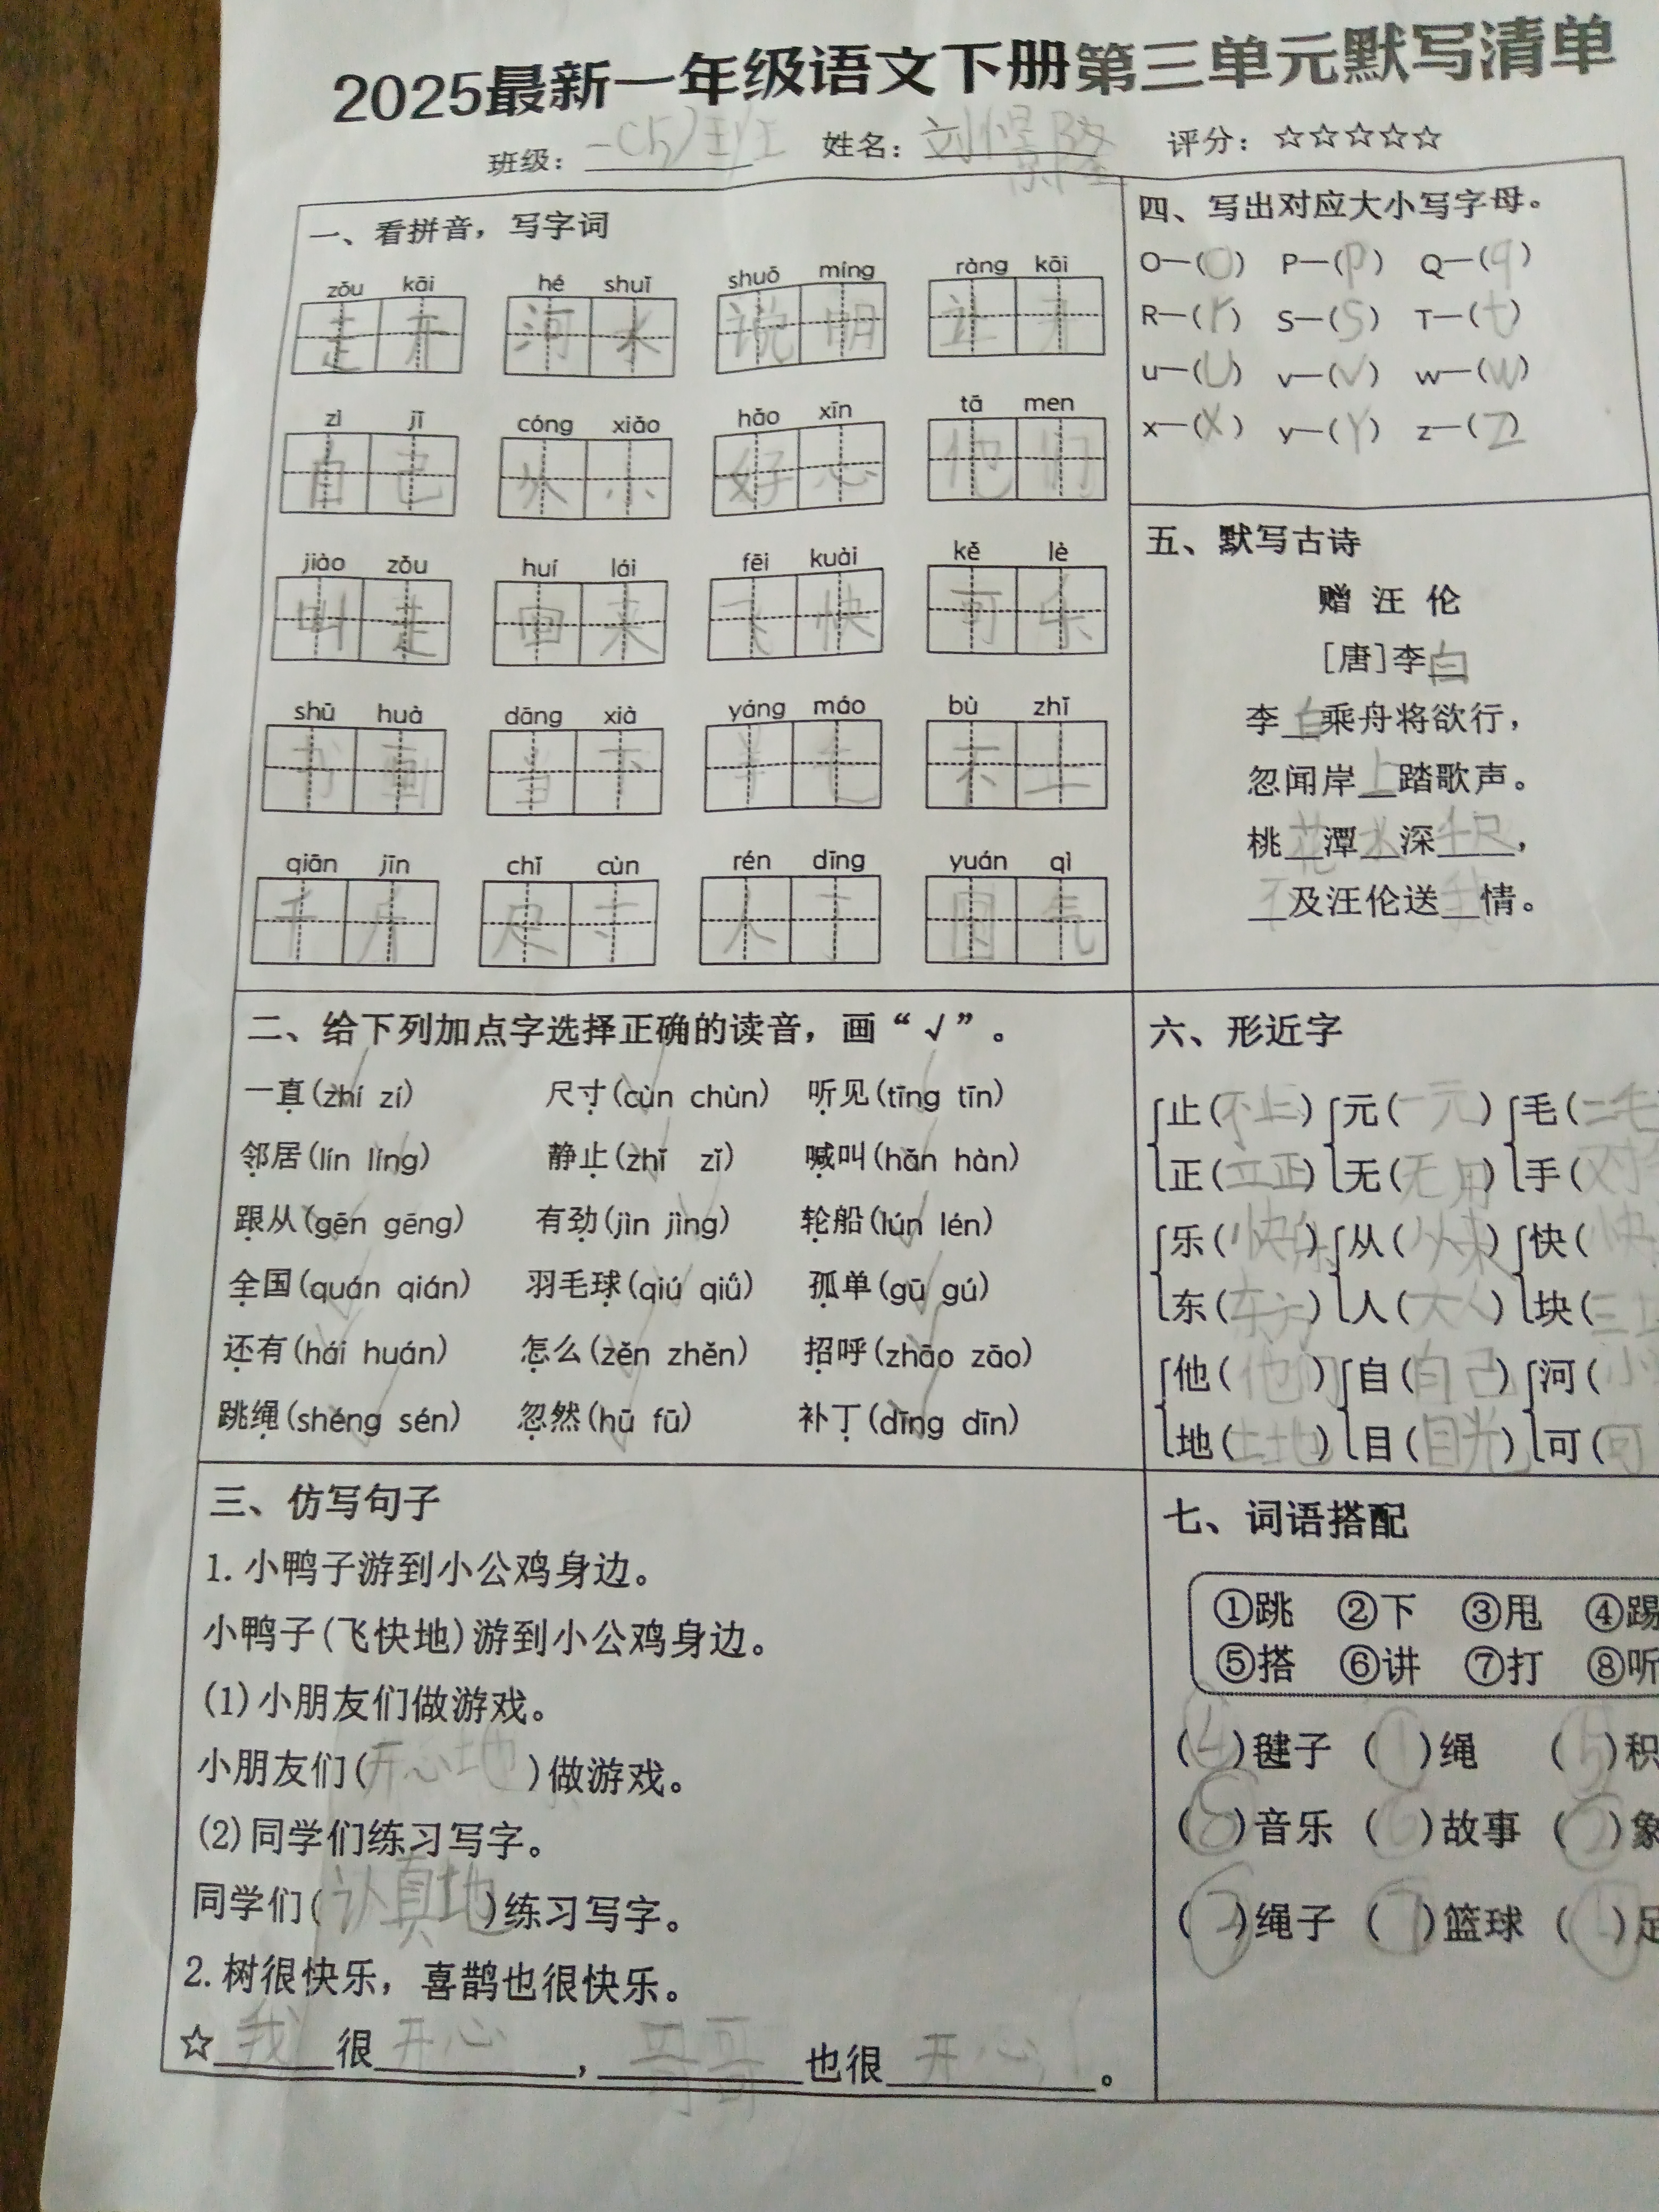 2025最新一年级语文下册第三单元默写清单
班级：一(5)班 姓名：刘憬隆 评分：☆☆☆☆☆
一、看拼音，写字词
zǒu kāi hé shuǐ shuō míng ràng kāi
走开 河水 说明 让开
zì jǐ cóng xiǎo hǎo xīn tā men
自己 从小 好心 他们
jiào zǒu huí lái fēi kuài kě lè
叫走 回来 飞快 可乐
shū huà dāng xià yáng máo bù zhǐ
书画 当下 羊毛 不止
qiān jīn chǐ cùn rén dīng yuán qì
千斤 尺寸 人丁 园气
二、给下列加点字选择正确的读音，画“√”。
一直(zhí zí) 尺寸(cùn chùn) 听见(tīng tīn)
邻居(lín líng) 静止(zhǐ zǐ) 喊叫(hǎn hàn)
跟从(gēn gēng) 有劲(jìn jìng) 轮船(lún lén)
全国(quán qián) 羽毛球(qiú qiǘ) 孤单(gū gú)
还有(hái huán) 怎么(zěn zhěn) 招呼(zhāo zāo)
跳绳(shéng sén) 忽然(hū fū) 补丁(dīng dīn)
三、仿写句子
1.小鸭子游到小公鸡身边。
小鸭子(飞快地)游到小公鸡身边。
(1)小朋友们做游戏。
小朋友们(开心地)做游戏。
(2)同学们练习写字。
同学们(认真地)练习写字。
2.树很快乐，喜鹊也很快乐。
☆我很开心，哥哥也很开心。
四、写出对应大小写字母。
O—(o) P—(p) Q—(q)
R—(r) S—(s) T—(t)
u—(U) v—(V) w—(W)
x—(X) y—(Y) z—(Z)
五、默写古诗
赠汪伦
[唐]李白
李白乘舟将欲行，
忽闻岸上踏歌声。
桃花潭水深千尺，
不及汪伦送我情。
六、形近字
止(不止) 元(一元) 毛(二毛
正(立正) 无(无用) 手(对
乐(快乐) 从(从来) 快(快
东(东方) 人(大人) 块(三
他(他们) 自(自己) 河(小
地(土地) 目(目光) 可(可
七、词语搭配
①跳 ②下 ③甩 ④踢
⑤搭 ⑥讲 ⑦打 ⑧听
(④)毽子 (①)绳 (⑤)积
(⑧)音乐 (⑥)故事 (②)象
(②)绳子 (⑦)篮球 ( )足